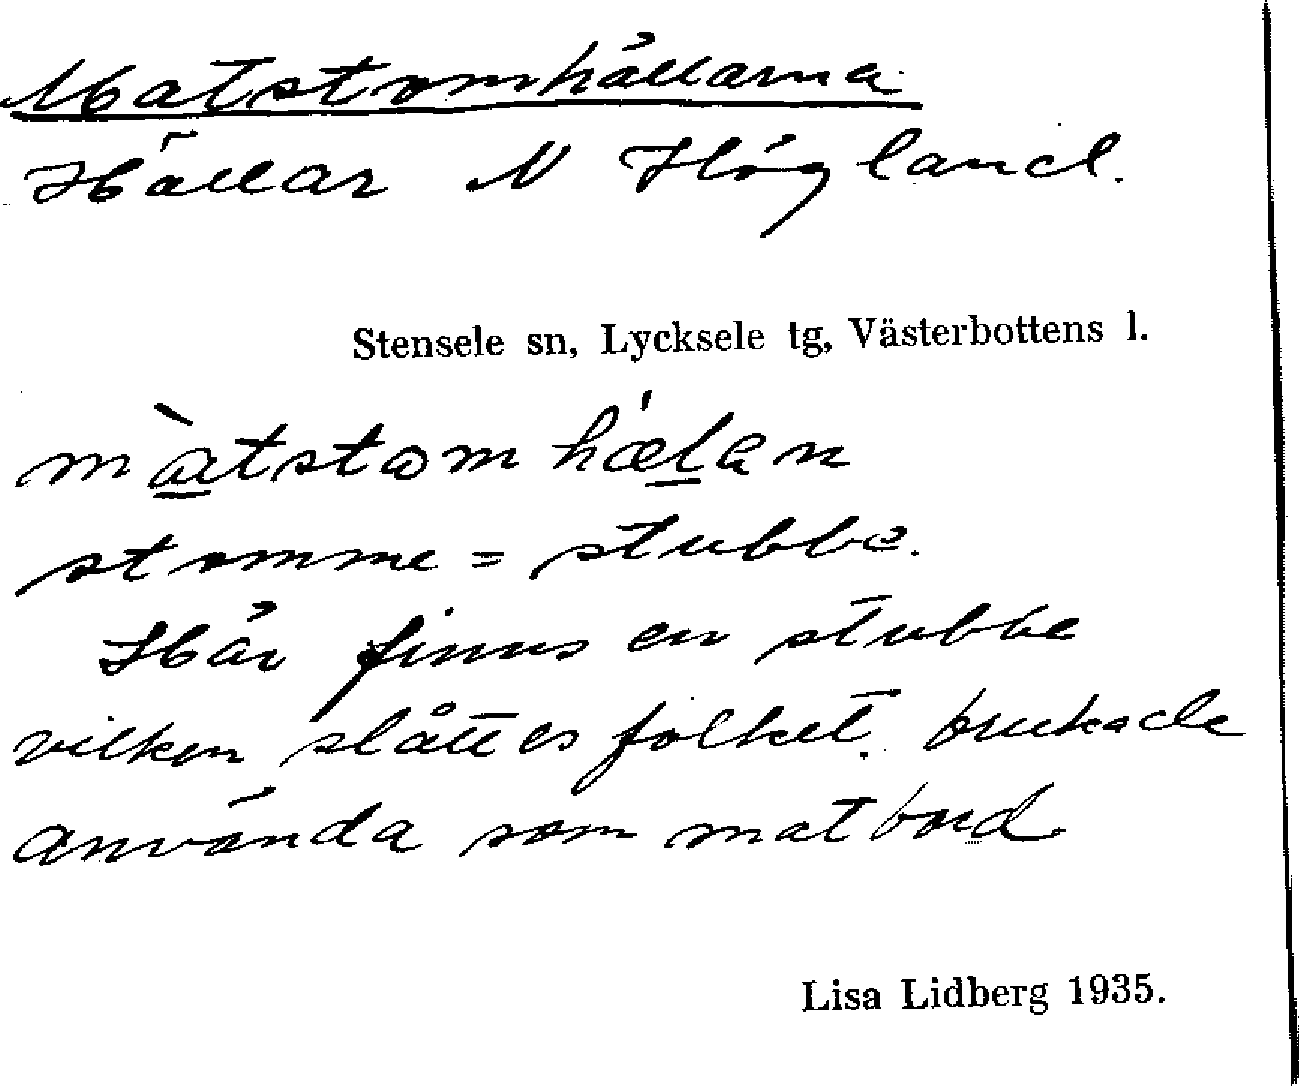 Matstomhällarna
Hällar N Högland.
Stensele sn, Lycksele tg, Västerbottens l.
màtstom hæ̀lan
stomme = stubbe.
Här finns en stubbe
vilken slåttesfolket brukade
använda som matbord
Lisa Lidberg 1935.